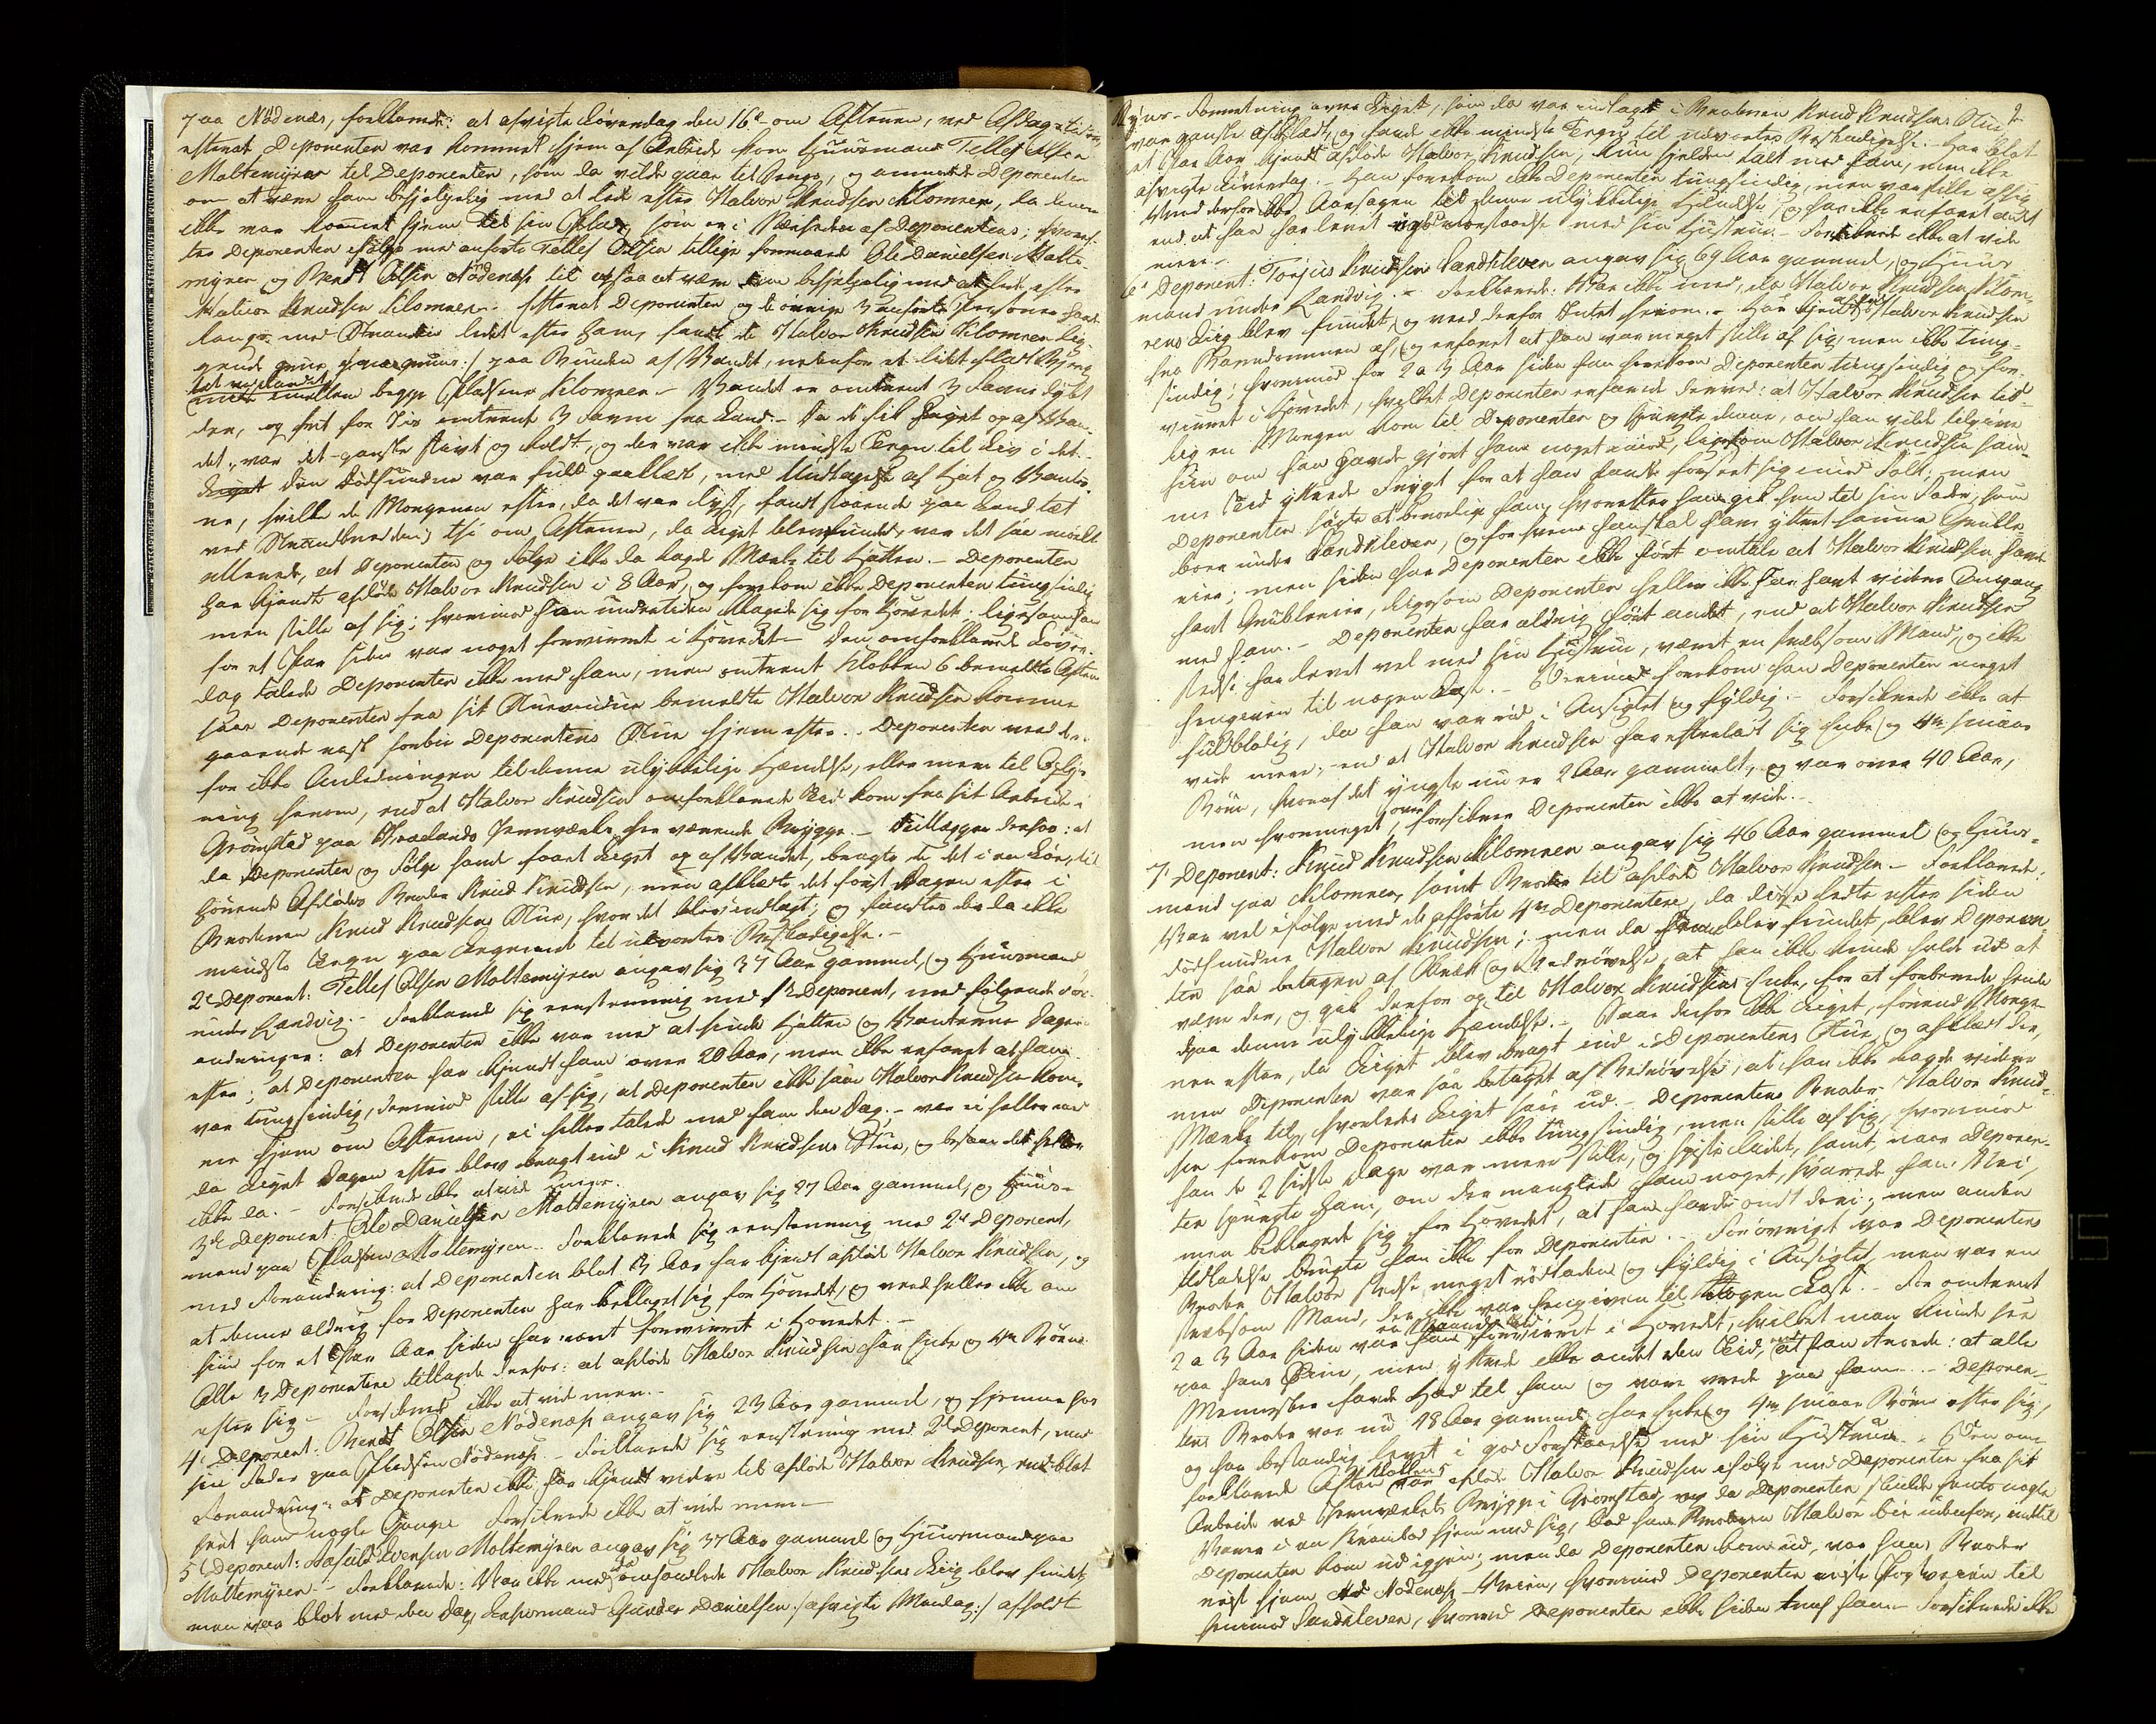 paa Nødenæs, forklarede: at afvigte Løverdag den 16de om Aftenen, ved Afdagstider,
efterat Deponenten var kommet hjem af Arbeide kom Huusmand Tellef Olsen
Moltemyren til Deponenten, som da vilde gaae til Sengs, og anmodede Deponenten
om at være ham behjelpelig med at lede efter Halvor Knudsen Klomren, da denne
ikke var kommet hjem til sin Plads, som er i Nærheden af Deponentens; hvoref-
ter Deponenten ifølge med anførte Tellef Olsen tillige formaaede Ole Danielsen Molte-
myren og Berndt Olsen Nødenæs til ogsaa at være dem behjelpelig med at lede efter
Halvor Knudsen Klomren. Efterat Deponenten og de øvrige 3 anførte Personer havde
længe med Strandens ledet efter ham, fandt de Halvor Knudsen Klomren lig-
gende paa Bunden af Vandet, nedenfor et lidet fladt Bjerg
imellem begge Pladsene Klomren. Vandet er omtrent 3 Favne dybt
der, og frit for Iis omtrent 3 Favne fra Land. Da de fik Liget op af Van-
det, var det ganske stivt og koldt, og der var ikke mindste Tegn til Liv i det.
Den Dødfundne var fuldt paaklædt, med Undtagelse af Hat og Vanter-
ne, hvilke de Morgenen efter, da det var lyst, fandt paa Land tæt
ved Strandbredden; thi om Aftenen, da Liget blev fundet, var det saa mørkt
allerede, at Deponenten og Følge ikke da lagde Mærke til Hatten. Deponenten
har kjendt afdøde Halvor Knudsen i 8 Aar, og forekom ikke Deponenten tungsindig
men stille af sig; hvorimod han undertiden klagede sig for Hovedet, ligesom han
for et Par siden var noget forvirret i Hovedet. Den omforklarede Løver-
dag talede Deponenten ikke med ham, men omtrent Klokken 6 bemeldte Aften
saae Deponenten fra sit Stuevindue bemeldte Halvor Knudsen komme
gaaende rask forbi Deponentens Stue hjemefter. Deponenten veed der-
for ikke Anledningen til denne ulykkelige Hændelse, eller mere til Oplys-
ning herom, end at Halvor Knudsen omforklarede Tid kom fra sit Arbeide i
Grømstad paa Frolands Jernværks her værende Brygge. Tillægger derhos: at
da Deponenten og Følge havde faaet Liget op af Vandet, bragte de det i en Løe, til-
hørende Afdødes Broder Knud Knudsen, men afklædte det først Dagen efter i
Broderen Knud Knudsens Stue, hvor det blev indlagt; og fandtes der da ikke
mindste Tegn paa Legemet til udvortes Beskadigelse.
2de Deponent: Tellef Olsen Moltemyren angav sig 37 Aar gammel, og Huusmand
under Landvig. Forklarede sig eenstemmig med 1ste Deponent, med følgende For-
andringer: at Deponenten ikke var med at finde Hatten og Vanterne Dagen
efter; at Deponenten har kjendt ham over 20 Aar, men ikke erfaret at han
var tungsindig, derimod stille af sig, at Deponenten ikke saae Halvor Knudsen kom-
me hjem om Aftenen, ei heller talede med ham den Dag, var ei heller med
da Liget Dagen efter blev bragt ind i Knud Knudsens Stue, og besaae det heller
ikke da. Forsikrede ikke at vide mere.
3die Deponent: Ole Danielsen Moltemyren angav sig 27 Aar gammel, og Huus-
mand paa Pladsen Moltemyren. Forklarede sig eenstemmig med 2de Deponent,
med Forandring: at Deponenten blot 3 Aar har kjendt afdøde Halvor Knudsen, og
at denne aldrig for Deponenten har beklaget sig for Hovedet, og veed heller ikke om
han for et Par Aar siden har været forvirret i Hovedet.
Alle 3 Deponentene tillagde derhos: at afdøde Halvor Knudsen har Enke og 4re Børn
efter sig. Forsikrede ikke at vide mere.
4de Deponent: Berndt Olsen Nødenæs angav sig 23 Aar gammel, og hjemme hos
sin Fader paa Pladsen Nødenæs. Forklarede sig eenstemmig med 2de Deponent, med
Forandring: at Deponenten ikke har kjendt videre til afdøde Halvor Knudsen, end blot
seet ham nogle Gange. Forsikrede ikke at vide mere.
5te Deponent: Evensen Moltemyren angav sig 37 Aar gammel og Huusmand paa
Moltemyren. Forklarede: Var ikke med da omhandlede Halvor Knudsens Liig blev fundet,
men var blot med den Dag, Lensmand Gunder Danielsen /: afvigte Mandag :/ afholdt
Syns-Forretning over Liget, som da var indlagt i Broderen Knud Knudsens Stue
var ganske afklædt, og fandt ikke mindste Tegn til udvortes Beskadigelse. Har blot
et Par Aar kjendt afdøde Halvor Knudsen, kun sjelden talt med ham, men ikke
afvigte Løverdag. Han forekom ikke Deponenten tungsindig, men var stille af sig.
Veed derfor ikke Aarsagen til denne ulykkelige Hændelse, og har ikke erfaret andet
end at han har levet i god Forstaaelse med sin Hustrue. Forsikrede ikke at vide
mere.
6te Deponent: Torjus Knudsen Sandkleven angav sig 69 Aar gammel, og Huus-
mand under Landvig. Forklarede: Var ikke med, da Halvor Knudsen Klom-
rens Liig blev fundet, og veed derfor Intet herom. Har kjendt afdøde Halvor Knudsen
fra Barndommen af, og erfaret at han var meget stille af sig, men ikke tung-
sindig; hvorimod for 2 a 3 Aar siden han forekom Deponenten tungsindig og for-
virret i Hovedet, hvilket Deponenten erfarede derved: at Halvor Knudsen tid-
lig en Morgen kom til Deponenten og spurgte denne, om han vilde tilgive
ham om han havde gjort ham noget imod, ligesom Halvor Knudsen sam-
me Tid yttrede Frygt for at han havde forseet sig mod Folk; men
Deponenten søgte at beroelige ham, hvorefter han gik hen til sin Fader, som
boer under Sandkleven, og for hvem han skal have yttret samme Grille-
rier; men siden har Deponenten ikke hørt omtale at Halvor Knudsen havde
havt Grublerier, ligesom Deponenten heller ikke har havt videre Omgang
med ham. Deponenten har aldrig hørt andet, end at Halvor Knudsen
stedse har levet vel med sin Hustrue, været en stræbsom Mand, og ikke
hengiven til nogen Last. Derimod forekom han Deponenten meget
fuldblodig, da han var rød i Ansigtet og fyldig. Forsikrede ikke at
vide mere, end at Halvor Knudsen har efterladt sig Enke og 4re smaae
Børn, hvoraf det yngste nu er 2 Aar gammelt, og var over 40 Aar,
men hvormeget over, forsikrer Deponenten ikke at vide.
7de Deponent: Knud Knudsen Klomren angav sig 46 Aar gammel og Huus-
mand paa Klomren, samt Broder til afdøde Halvor Knudsen. Forklarede:
Var vel ifølge med de afhørte 4re Deponentere, da disse ledte efter siden
dødfundne Halvor Knudsen; men da han blev fundet, blev Deponen-
ten saa betagen af Skræk og Bedrøvelse, at han ikke kunde holde ud at
være der, og gik derfor op til Halvor Knudsens Enke, for at forberede hende
paa denne ulykkelige Hændelse. Saae derfor ikke Liget, førend Morge-
nen efter, da Liget blev bragt ind i Deponentens Stue, og afklædt der,
men Deponenten var saa betaget af Bedrøvelse, at han ikke lagde videre
Mærke til, hvorledes Liget saae ud. Deponentens Broder Halvor Knud-
sen forekom Deponenten ikke tungsindig, men stille af sig, hvorimod
han de 2 sidste Dage var mere stille, og spiste lidet, samt, naar Deponen-
ten spurgte ham, om der manglede ham noget, svarede han: Nei,
men beklagede sig for Hovedet, at han havde ondt deri; men anden
Udladelse brugte han ikke for Deponenten. Forøvrigt var Deponentens
Broder Halvor stedse meget rødladen og fyldig i Ansigtet, men var en
stræbsom Mand, der ikke var hengiven til nogen Last. For omtrent
2 a 3 Aar siden var han en Maaneds Tid forvirret i Hovedet, hvilket man kunde see
paa hans Øine, men yttrede ikke andet den Tid, end at han troede: at alle
Mennesker havde Had til ham og vare vrede paa ham. Deponen-
tens Broder var nu 48 Aar gammel, har Enke og 4re smaae Børn efter sig,
og har bestandig levet i god Forstaaelse med sin Hustrue. Den om-
forklarede Aften Klokken 5 var afdøde Halvor Knudsen ifølge med Deponenten fra sit
Arbeide ved Jernværkets Brygge i Grømstad, og da Deponenten skulde hente nogle
Varer i en Krambod hjem med sig, bad han Broderen Halvor bie udenfor, indtil
Deponenten kom ud igjen; men da Deponenten kom ud, var hans Broder
reist hjem ad Nødenæs-Veien, hvorimod Deponenten reiste Postveien til
henimod Sandkleven, hvorved Deponenten ikke siden traf ham. Forsikrede ikke